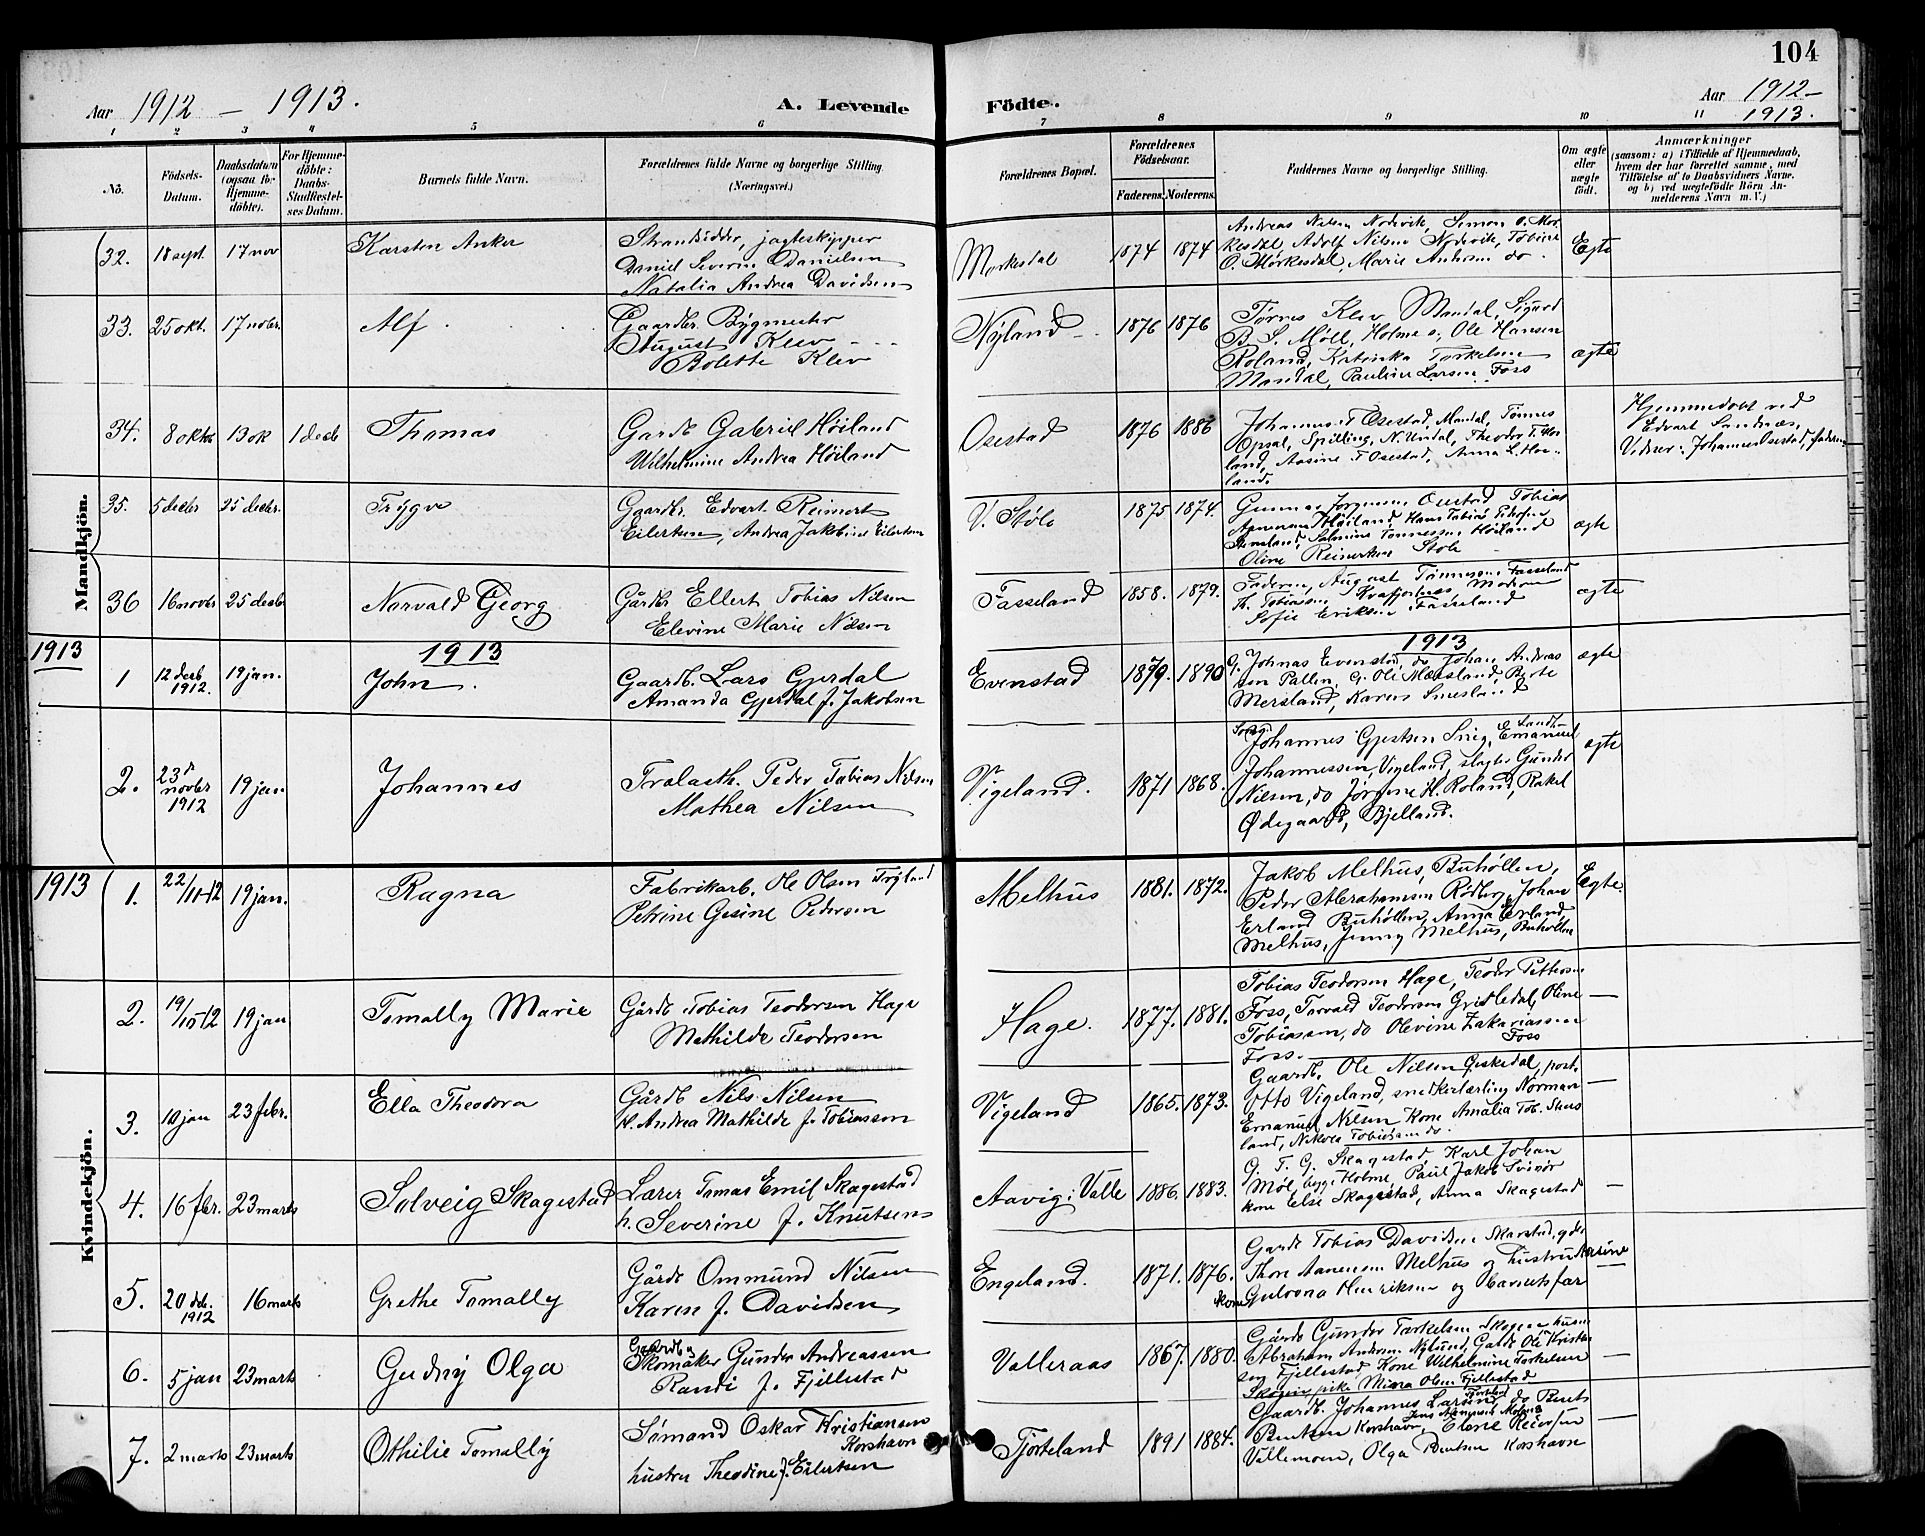 104
Aar 1912 – 1913.
A. Levende Födte.
Aar 1912–1913.
1 2 3 4 5 6 7 8 9 10 11
No.
Födsels-Datum.
Daabsdatum (ogsaa for Hjemme-döbte).
For Hjemme-döbte: Daabs-Stadfæstel-ses Datum.
Barnets fulde Navn.
Forældrenes fulde Navne og borgerlige Stilling. (Næringsvei.)
Forældrenes Bopæl.
Forældrenes Födselsaar.
Faderens. Moderens.
Faddernes Navne og borgerlige Stilling.
Om ægte eller uægte födt.
Anmærkninger
(saasom: a) i Tilfælde af Hjemmedaab, hvem der har forrettet samme, med Tilföielse af to Daabsvidners Navne, og b) ved uægtefödte Börn An-melderens Navn m. V.)
Mandkjön.
32. 18 sept. 17 nov Karsten Anker
Strandsidder, jagteskipper
Daniel Severin Danielsen
Natalia Andrea Davidsen
Morkesdal 1874 1874
Andreas Nilsen Nodevik, Simon O. Mør-
kesdal, Adolf Nilsen Nodevik, Tobine
O. Mørkesdal, Marie do
Egte
33. 25 okt. 17 nobr. Alf
Gaardbr. Bygmester
August Klev
Bolette Klev
Nyland 1876 1876
Tørres Klev Mandal, Sigurd
B. S. Möll, Holme s; Ole Hansen
Roland, Katinka Torkelsen
Mandal, Pauline Larsen Foss
ægte
34. 8 okt 13 ok 1 decb Thomas
Gardb Gabriel Höiland
Wilhelmine Andrea Höiland
Osestad 1876 1886
Johannes T Osestad, Mandal, Tönnes
Opsal, Spilling, N. Undal, Theodor T. Hör-
land, Aasine T Osestad, Anna L. Hör-
land.
Hjemmedøbt ved
Edvart
Vidner: Johannes Osestad, faderen
35. 5 decbr 25 decbr. Trygve
Gaardbr. Edvart Reinert
Eilertsen, Andrea Jakobine Eilertsen
V. Støle 1875 1874.
Gunnar Jørgensen Ouestad Tobias
Høiland, Hans Tobias
Salmine Tønnessen Höiland
Oline Reinertsen Stole
ægte
36 16 novbr 25 decbr Norvald Georg
Gårdbr Ellert Tobias Nilsen
Elevine Marie Nilsen
Fasseland 1858. 1879.
Faderen, August Tönnesen Fasseland
Th. Tobiassen Kvafjordnes Moderen
Sofie Eriksen Fasseland
ægte
1913 1913 1913
1 12 decb 1912. 19 jan. John
Gaardb. Lars Gjerdal
Amanda Gjerdal f. Jakobsen
Evenstad 1879. 1890
G. Johnas Evenstad, do Johan Andreas
sen Pallen, G. Ole Mæsland, Berte
Mersland, Karen
ægte
2. 23 novbr 1912 19 jan Johannes
Tralasth. Peder Tobias Nilsen
Mathea Nilsen
Vigeland. 1871 1868.
Johannes Gjertsen Snig, Landh. Emanuel
Johannessen, Vigeland, slagter Gunder
Nilsen, do Jørgine H. Roland, Rakel
Ødegaard, Bjelland.
ægte
1913
Kvindekjön.
1. 22/11-12 19 jan. Ragna
Fabrikarb. Ole Olsen Tryland
Petrine Gesine Pedersen
Melhus 1881. 1872.
Jakob Melhus, Buhöllen,
Peder Abrahamsen Rödberg, Johan
Erland Buhöllen, Anna Erland,
Melhus, Jenny Melhus, Buhöllen
Egte
2. 19/10-12 19 jan Tomally Marie
Gårdb Tobias Teodorsen Hage
Mathilde Teodorsen
Hage. 1877. 1881.
Tobias Teodorsen Hage, Teodor Pettersen
Foss, Torvald Teodorsen Gridledal, Oline
Tobiassen, do Olevine Zakariassen
Foss. Foss
—
3. 10 jan 23 febr. Ella Theodora
Gårdb Nils Nilsen
h. Andrea Mathilde f. Tobiassen
Vigeland 1865. 1873.
Gaardb. Ole Nilsen Giskedal, post.
Otto Vigeland, snedkerlærling Norman
Emanuel Nilsen Kone Amalia Tob. Skres
land, Nikolea Tobiassen do.
—
4. 16 fbr. 23 marts Solveig Skagestad
Lærer Tomas Emil Skagestad
h. Severine f. Knutsen
Aavig i Valle 1886. 1883.
G. T. G. Skagestad Karl Johan
Möl, bygi Holme, Paul Jakob Svinör
kone Else Skagestad, Anna Skagestad
—
5. 20 dcb. 1912 16 marts Grethe Tomally
Gårdb Ommund Nilsen
Karen f. Davidsen
Engeland. 1871. 1876.
Gardb Tobias Davidsen Skarstad, gdbr
Thore Aanensen Melhus og hustru Aasine
kone Gulovna Henriksen og Barnets far
—
6. 5 jan 23 marts Gudny Olga
Gaardb og Skomaker Gunder Andreassen
Randi f. Fjellestad
Valleraas 1867. 1880.
Gårdb Gunder Torkelsen Skogen husm
Abraham Andersen Nylund, Gardb Ole Kristen
sen Fjellestad Kone Wilhelmine Torkelsen
Skogen pike Minna Olsen Fjellestad
—
7. 2 marts 23 marts Othilie Tomally
Sømand Oskar Kristiansen
Korshavn
hustru Theodine f. Eilertsen
Tjorteland 1891 1884.
Gaardb. Johannes Larsen Tjortland do Bent
Bentsen Korshavn, Kone
Vallemoen, Olga Bentsen Korshavn
—